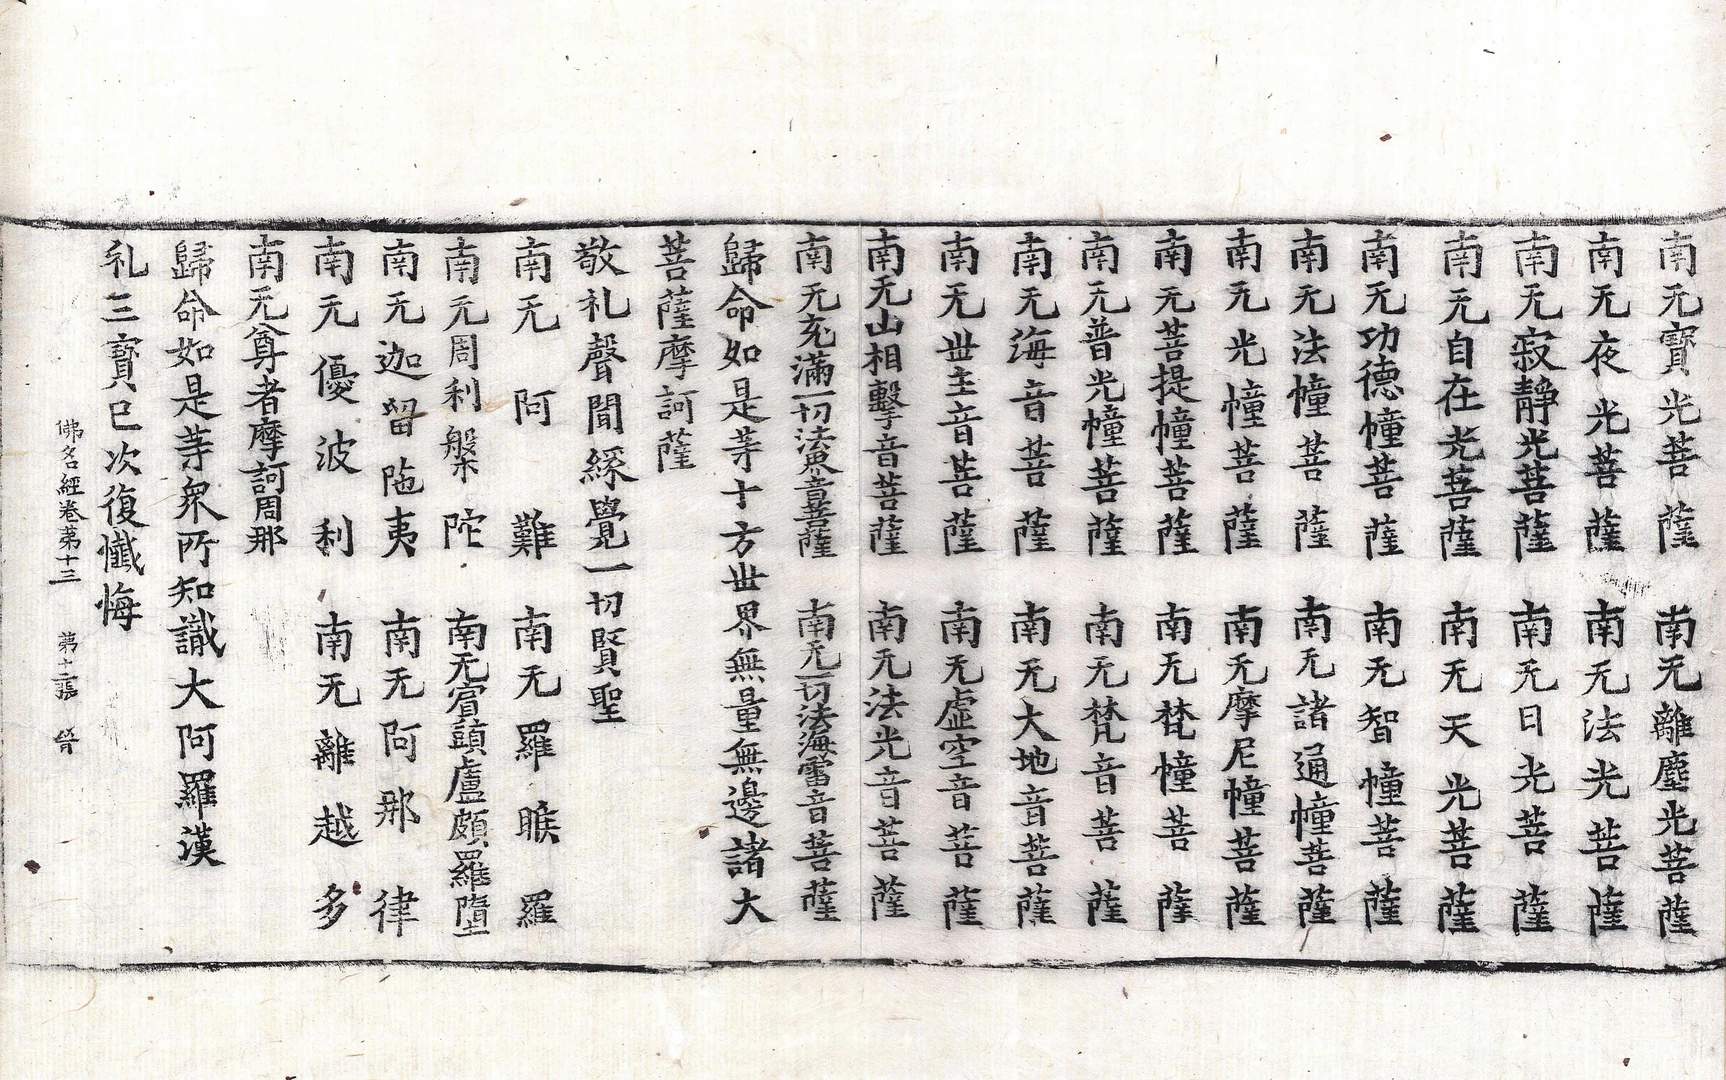 南无寶光菩薩　南无離塵光菩薩
南无夜光菩薩　南无法光菩薩
南无寂靜光菩薩　南无日光菩薩
南无自在光菩薩　南无天光菩薩
南无功德幢菩薩　南无智幢菩薩
南无法幢菩薩　南无諸通幢菩薩
南无光幢菩薩　南无摩尼幢菩薩
南无菩提幢菩薩　南无梵幢菩薩
南无普光幢菩薩　南无梵音菩薩
南无海音菩薩　南无大地音菩薩
南无世主音菩薩　南无虛空音菩薩
南无山相擊音菩薩　南无法光音菩薩
南无充滿一切法界音菩薩　南无一切法海雷音菩薩
歸命如是等十方世界無量無邊諸大
菩薩摩訶薩
敬礼聲聞緣覺一切賢聖
南无阿難　南无羅睺羅
南无周利槃陀　南无賓頭盧頗羅墮
南无迦留陁夷　南无阿那律
南无優波利　南无離越多
南无尊者摩訶周那
歸命如是等衆所知識大阿羅漢
礼三寶已次復懺悔
佛名經卷苐十三　苐十二張